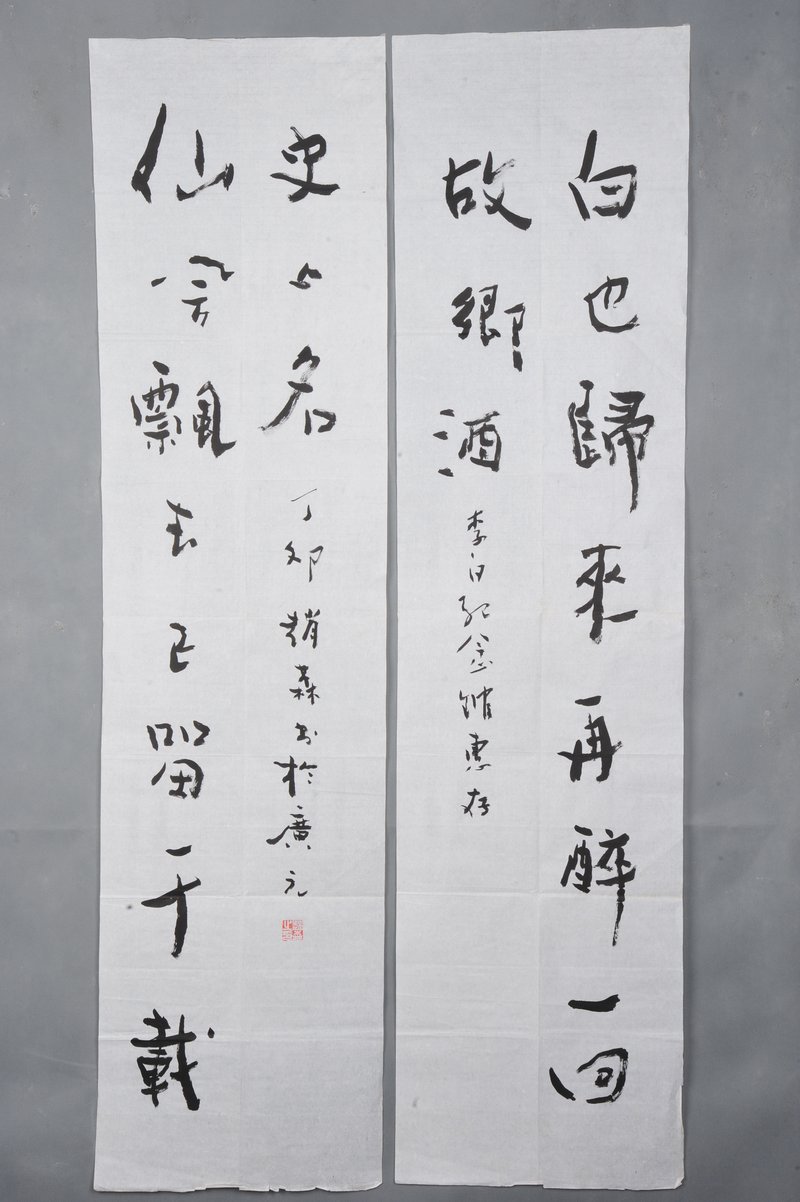 白也歸來再醉一回
故鄉酒
李白紀念館惠存
仙兮飄去已留千載
史上名
丁卯趙森書於廣元